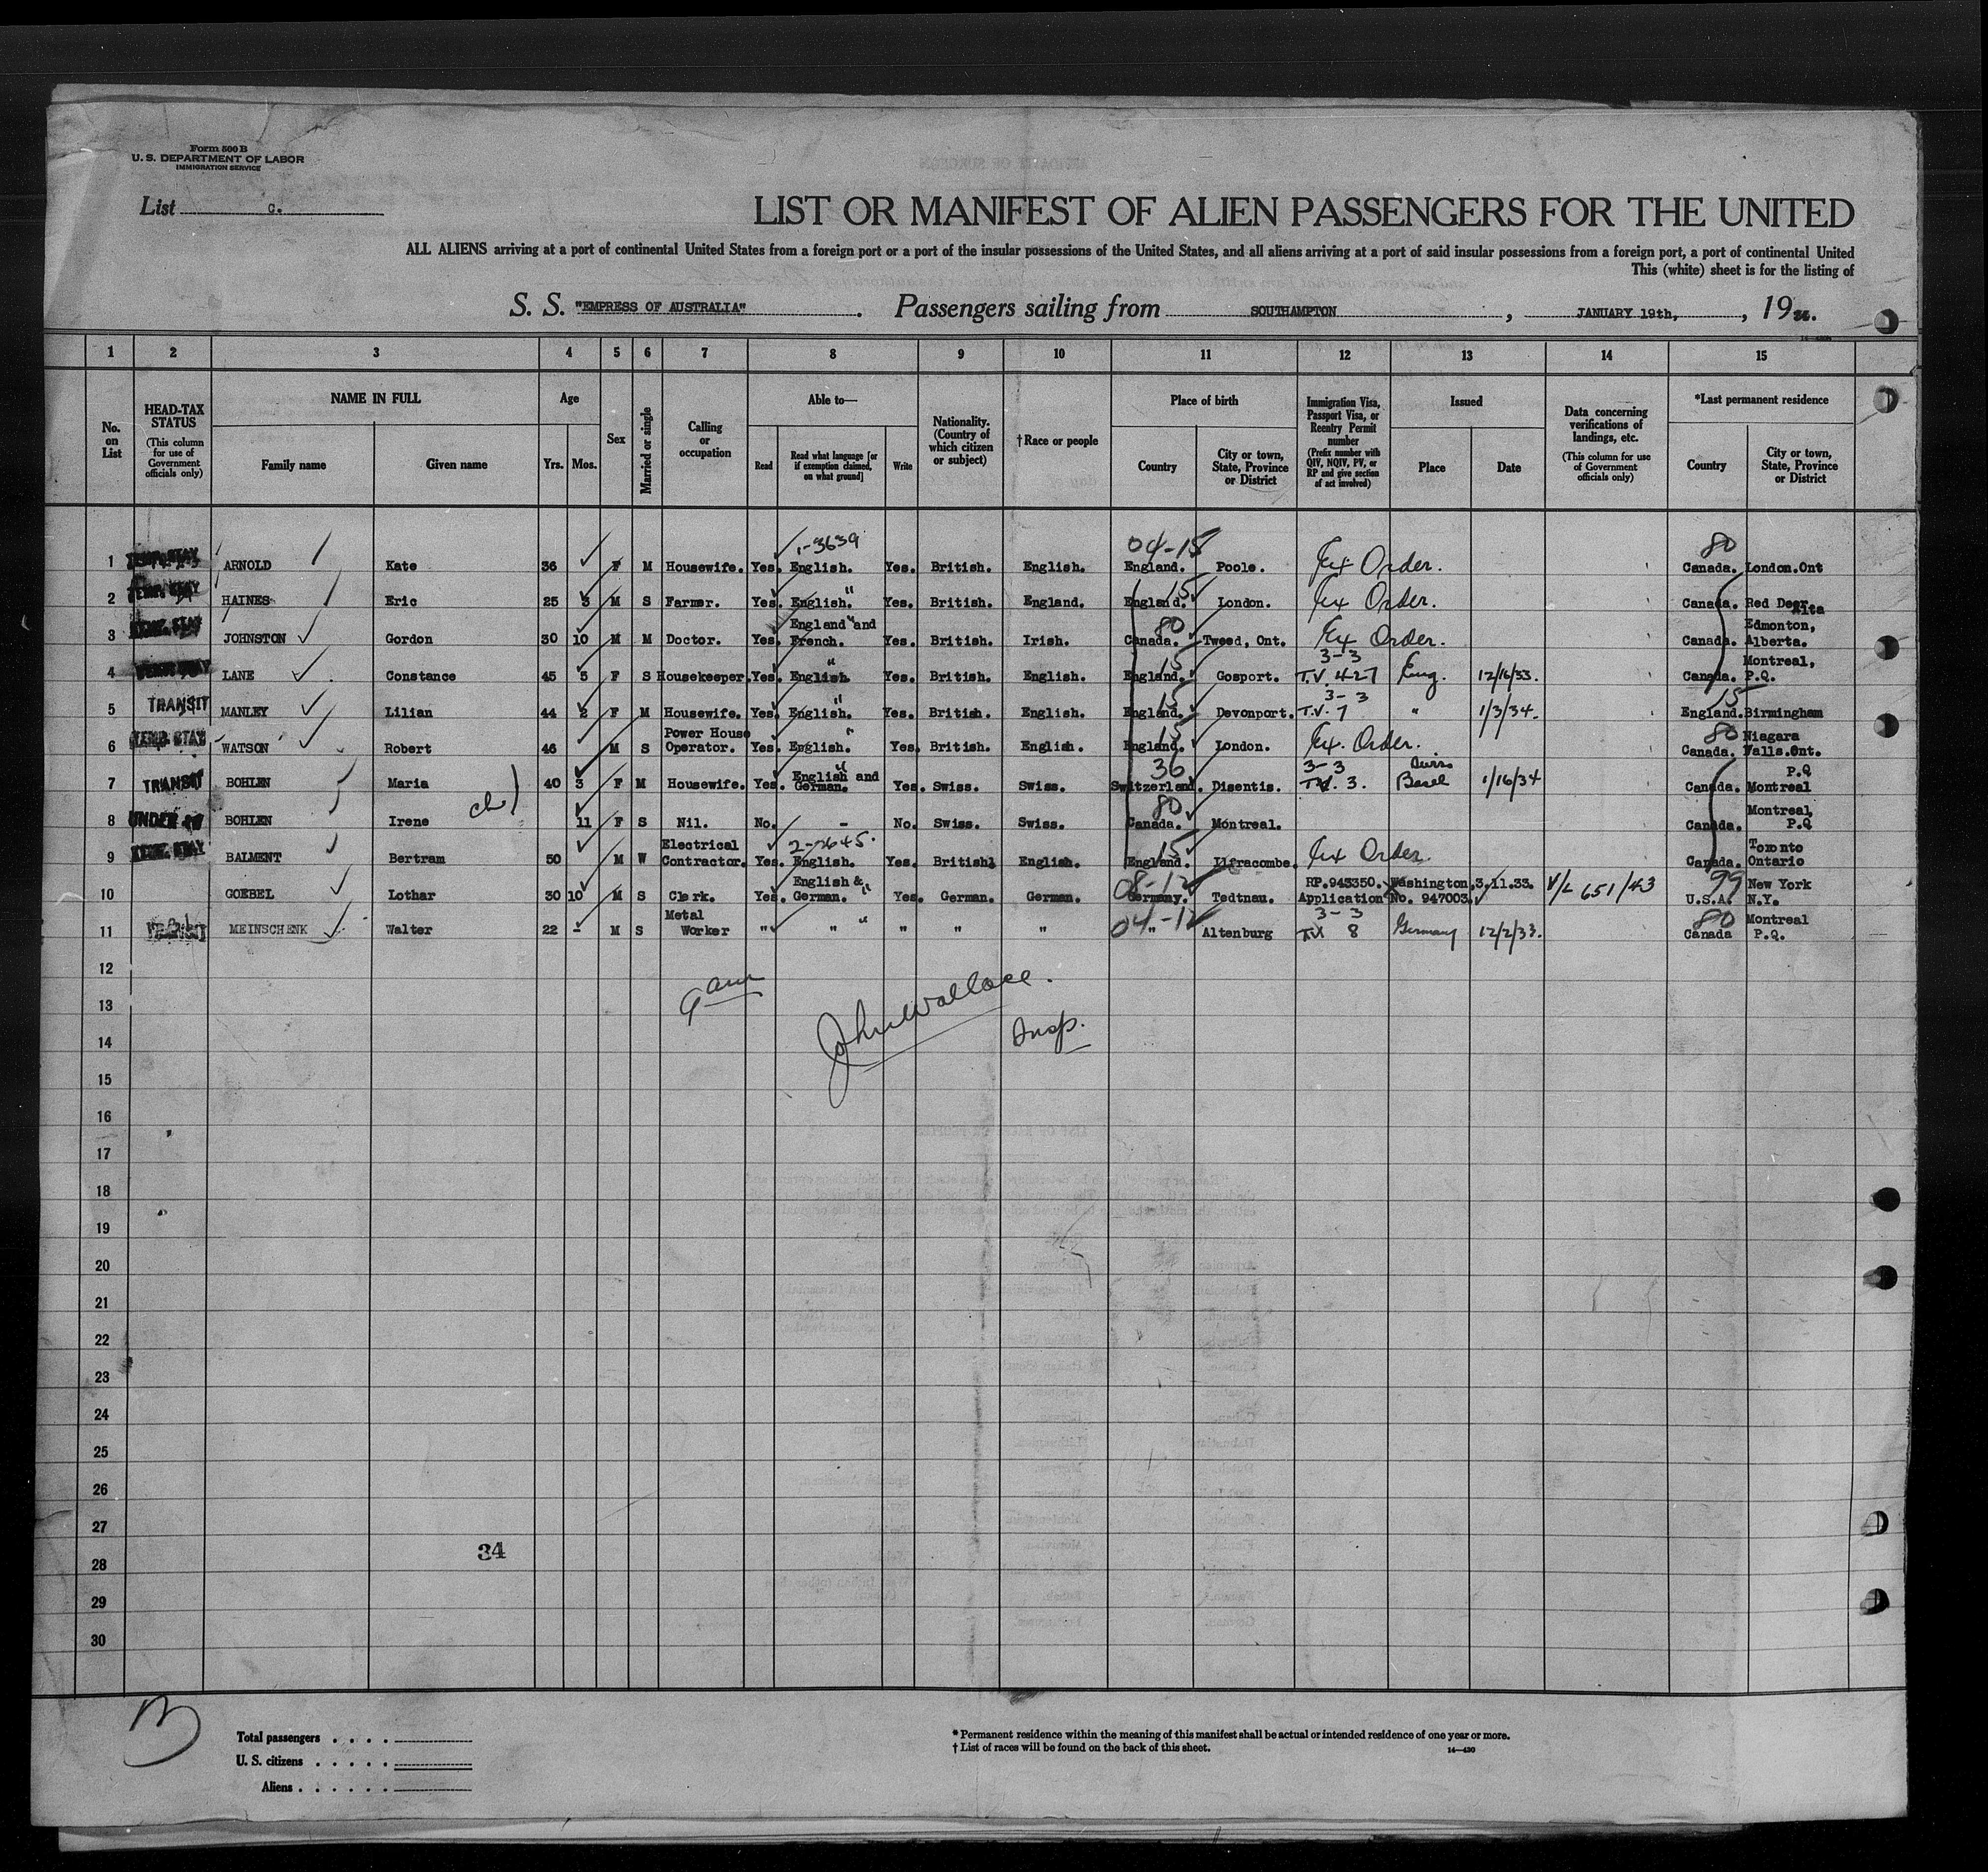 Form 500 B
U. S. DEPARTMENT OF LABOR
IMMIGRATION SERVICE
List C.
LIST OR MANIFEST OF ALIEN PASSENGERS FOR THE UNITED
ALL ALIENS arriving at a port of continental United States from a foreign port or a port of the insular possessions of the United States, and all aliens arriving at a port of said insular possessions from a foreign port, a port of continental United
This (white) sheet is for the listing of
S. S. "EMPRESS OF AUSTRALIA". Passengers sailing from SOUTHAMPTON, JANUARY 19th, , 19
1 2 3 4 5 6 7 8 9 10 11 12 13 14 15
No. on List
HEAD-TAX STATUS (This column for use of Government officials only)
NAME IN FULL Family name Given name
Age Yrs. Mos.
Sex
Married or single
Calling or occupation
Able to— Read Read what language [or if exemption claimed, on what ground] Write
Nationality. (Country of which citizen or subject)
†Race or people
Place of birth Country City or town, State, Province or District
Immigration Visa, Passport Visa, or Reentry Permit number (Prefix number with QIV, NQIV, PV, or RP and give section of act involved)
Issued Place Date
Data concerning verifications of landings, etc. (This column for use of Government officials only)
*Last permanent residence Country City or town, State, Province or District
1-3639 04-15 80
1 TEMP. STAY ARNOLD Kate 36 F M Housewife. Yes. English. Yes. British. English. England. Poole. Ex Order. Canada. London.Ont
2 TEMP. STAY HAINES Eric 25 3 M S Farmer. Yes. English. " Yes. British. England. England. 15 London. Ex Order. Canada. Red Deer Alta
3 TEMP. STAY JOHNSTON Gordon 30 10 M M Doctor. Yes. England and French. " Yes. British. Irish. Canada. 80 Tweed, Ont. Ex Order. Canada. Edmonton, Alberta.
4 TEMP. STAY LANE Constance 45 5 F S Housekeeper. Yes. English. " Yes. British. English. England. 15 Gosport. 3-3 T.V. 427 Eng. 12/16/33. Canada. Montreal, P.Q.
5 TRANSIT MANLEY Lilian 44 2 F M Housewife. Yes. English. " Yes. British. English. England. 15 Devonport. 3-3 T.V. 7 " 1/3/34. England. 15 Birmingham
6 TEMP. STAY WATSON Robert 46 M S Power House Operator. Yes. English. " Yes. British. English. England. 15 London. Ex. Order. Canada. 80 Niagara Falls.Ont.
7 TRANSIT BOHLEN Maria 40 3 F M Housewife. Yes. English and German. " Yes. Swiss. Swiss. Switzerland. 36 Disentis. 3-3 T.V. 3. Swiss Basel 1/16/34 Canada. P.Q Montreal
8 UNDER BOHLEN Irene ch 11 F S Nil. No. - No. Swiss. Swiss. Canada. 80 Montreal. Canada. Montreal, P.Q
9 TEMP. STAY BALMENT Bertram 50 M W Electrical Contractor. Yes. 2-2645. English. Yes. British. English. England. 15 Ilfracombe. Ex Order. Canada. Toronto Ontario
10 GOEBEL Lothar 30 10 M S Clerk. Yes. English & German. " Yes. German. German. 08-12 Germany. Todtnau. RP.943350. Application No. 947003. Washington 3.11.33. V/L 651/43 99 U.S.A. New York N.Y.
11 TRANSIT MEINSCHENK Walter 22 - M S Metal Worker " " " " " " 04-12 " Altenburg 3-3 T.V 8 Germany 12/2/33. 80 Canada Montreal P.Q.
12
9 am
13
John Wallace.
14
Insp.
15
16
17
18
19
20
21
22
23
24
25
26
27
34
28
29
30
Total passengers . . . .
U. S. citizens . . . . .
Aliens . . . . . .
* Permanent residence within the meaning of this manifest shall be actual or intended residence of one year or more.
† List of races will be found on the back of this sheet.
14—430